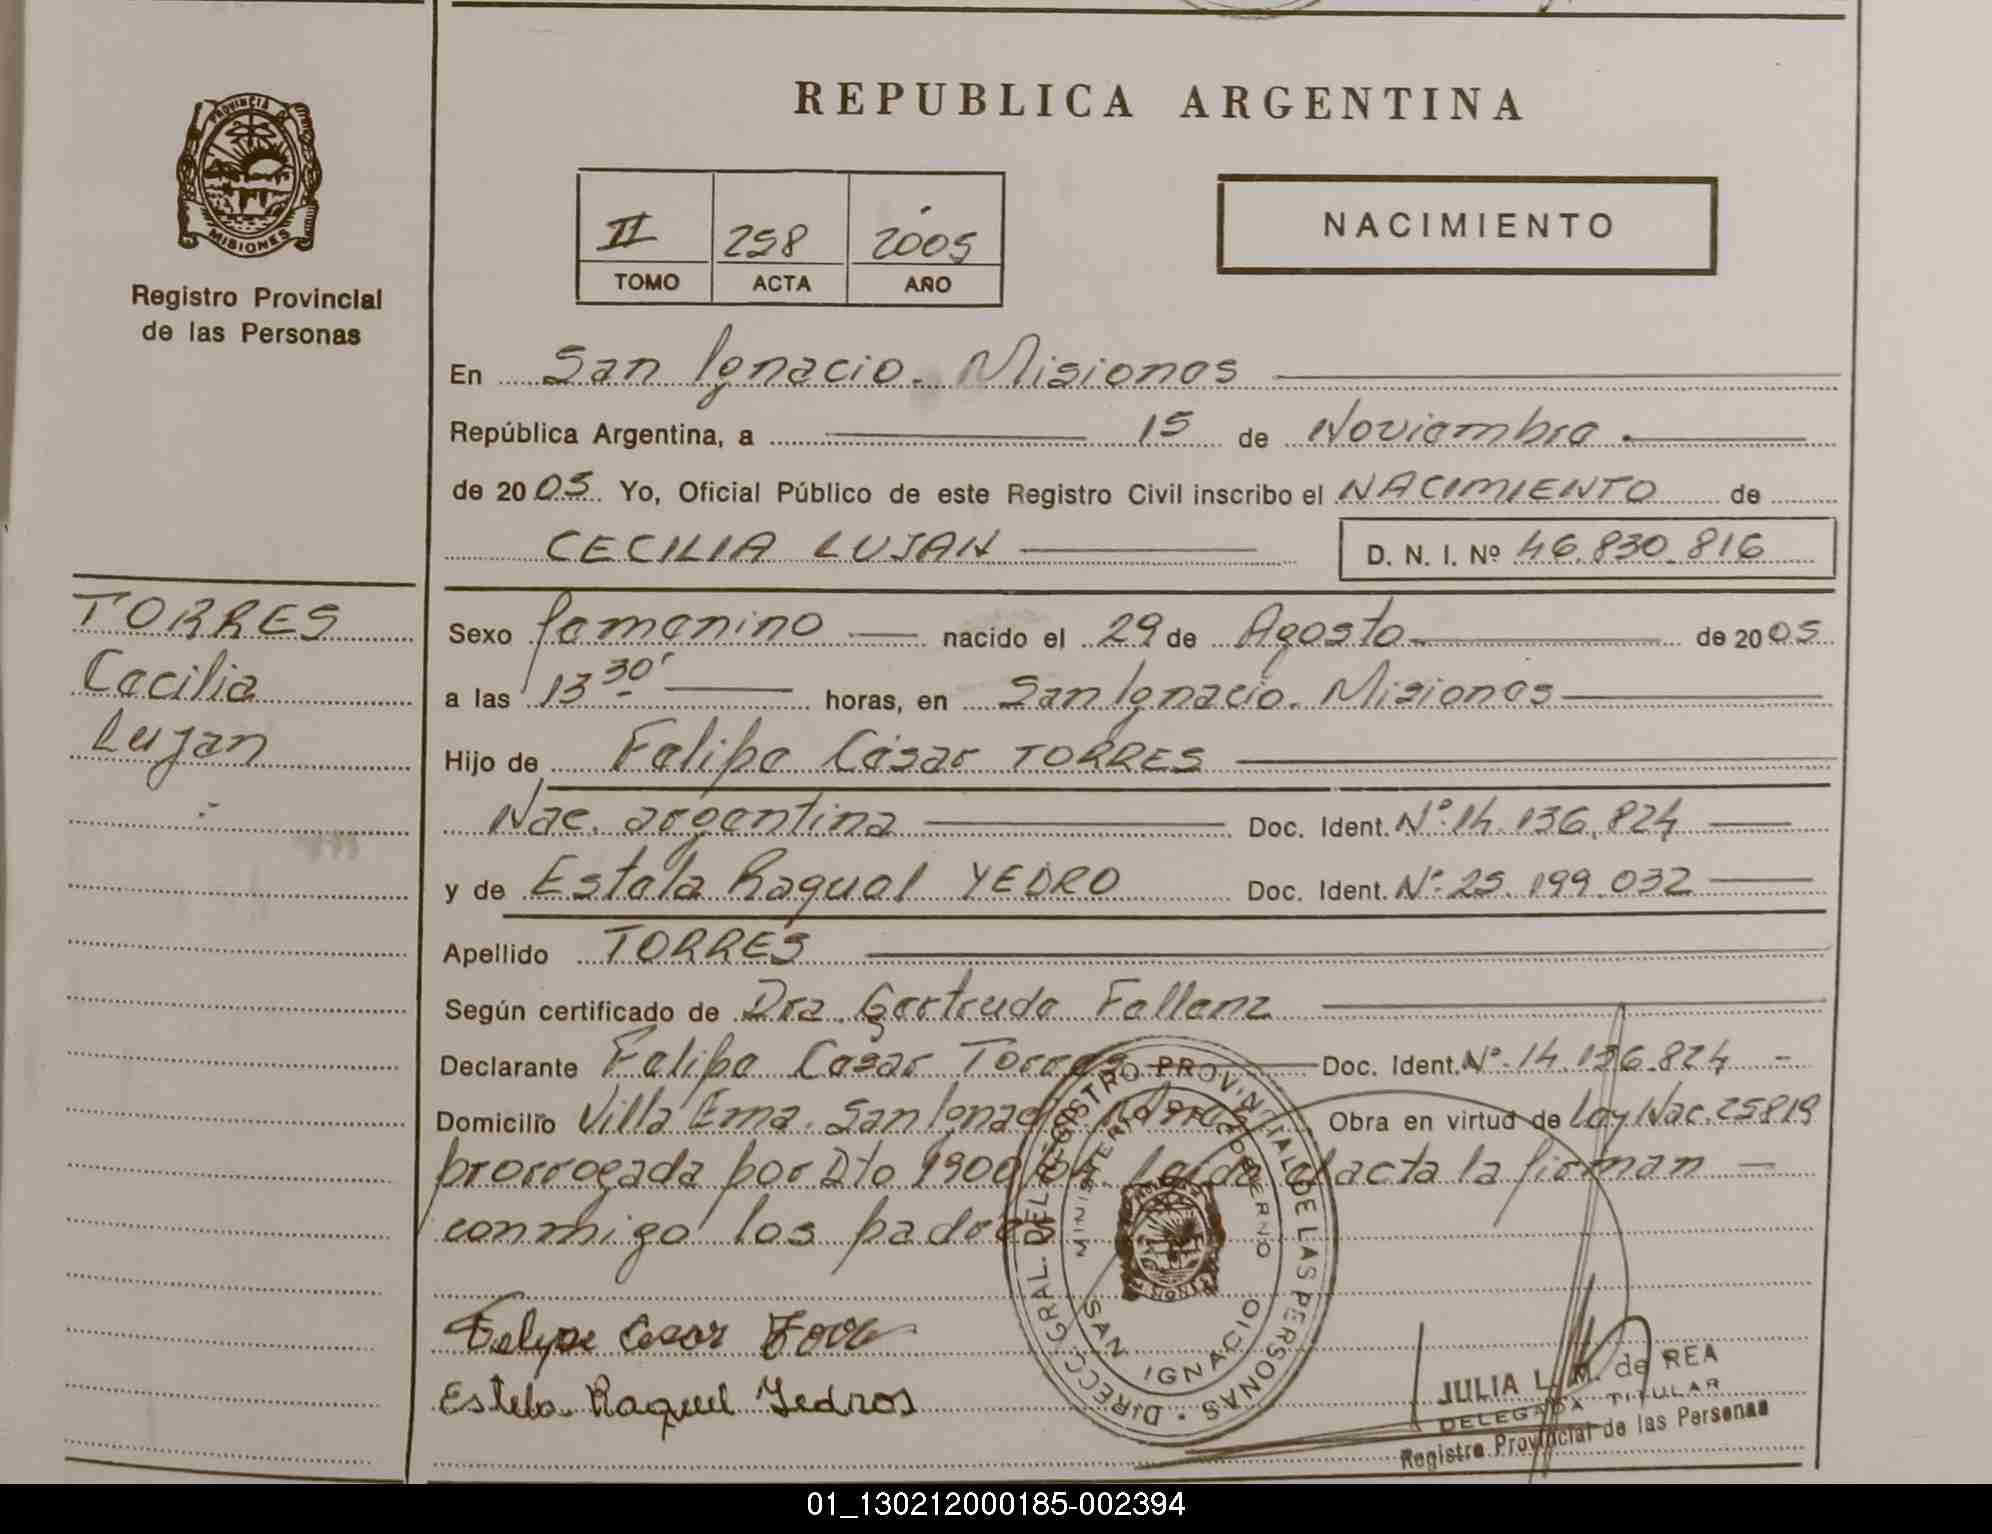 REPUBLICA ARGENTINA
PROVINCIA DE
MISIONES
Registro Provincial
de las Personas
II 258 2005
TOMO ACTA AÑO
NACIMIENTO
En San Ignacio. Misiones
República Argentina, a 15 de Noviembre
de 2005. Yo, Oficial Público de este Registro Civil inscribo el NACIMIENTO de
CECILIA LUJAN D. N. I. Nº 46.830.816
TORRES
Cecilia
Lujan
Sexo femenino nacido el 29 de Agosto de 2005
a las 13 30' horas, en San Ignacio. Misiones
Hijo de Felipe César TORRES
Nac. argentina Doc. Ident. Nº 14.136.824
y de Estela Raquel YEDRO Doc. Ident. Nº 25.199.032
Apellido TORRES
Según certificado de Dra. Gertrude Fellenz
Declarante Felipe Cesar Torres Doc. Ident. Nº 14.136.824
Domicilio Villa Ema. San Ignacio Obra en virtud de Ley Nac. 25819
prorrogada por Dto 1900/04. Leida el acta la firman
conmigo los padres
DIRECC. GRAL. DEL REGISTRO PROVINCIAL DE LAS PERSONAS
MINISTERIO DE GOBIERNO
SAN IGNACIO
Felype Cesar
Estela Raquel Yedros
JULIA L. M. de REA
DELEGADA TITULAR
Registro Provincial de las Personas
01_130212000185-002394